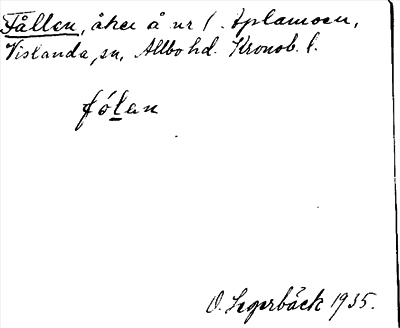 Fållen, åker å nr 1. Aplamoen,
Vislanda sn, Allbo hd. Kronob. l.
fólan
O. Segerbäck 1935.